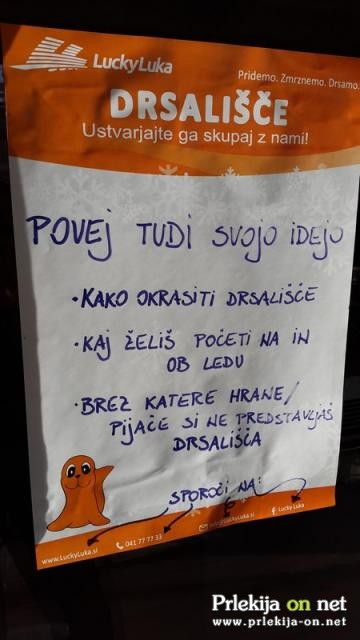 LuckyLuka
Pridemo. Zmrznemo. Drsamo.
DRSALIŠČE
Ustvarjajte ga skupaj z nami!
POVEJ TUDI SVOJO IDEJO
· KAKO OKRASITI DRSALIŠČE
· KAJ ŽELIŠ POČETI NA IN
OB LEDU
· BREZ KATERE HRANE/
PIJAČE SI NE PREDSTAVLJAŠ
DRSALIŠČA
SPOROČI NA:
www.LuckyLuka.si
041 77 77 33
info@LuckyLuka.si
Lucky Luka
Prlekija on net
www.prlekija-on.net